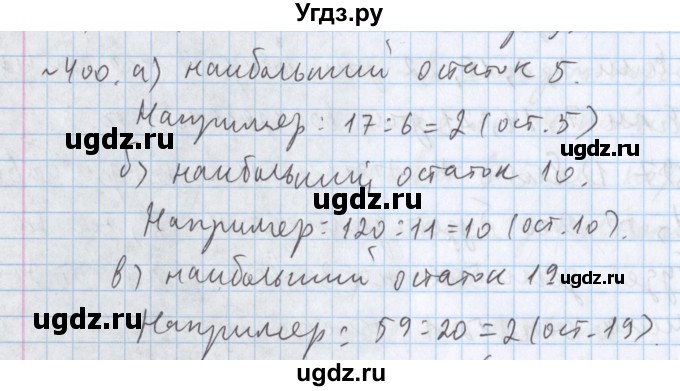 Угдз.ру
№400. а) наибольший остаток 5.
Например: 17:6=2 (ост. 5)
ugdz.ru ugdz.ru
б) наибольший остаток 10.
ugdz.ru
Например: 120:11=10 (ост. 10).
ugdz.ru
в) наибольший остаток 19
ugdz.ru
ugdz.ru
Например: 59:20=2 (ост. 19).
ugdz.ru
ugdz.ru